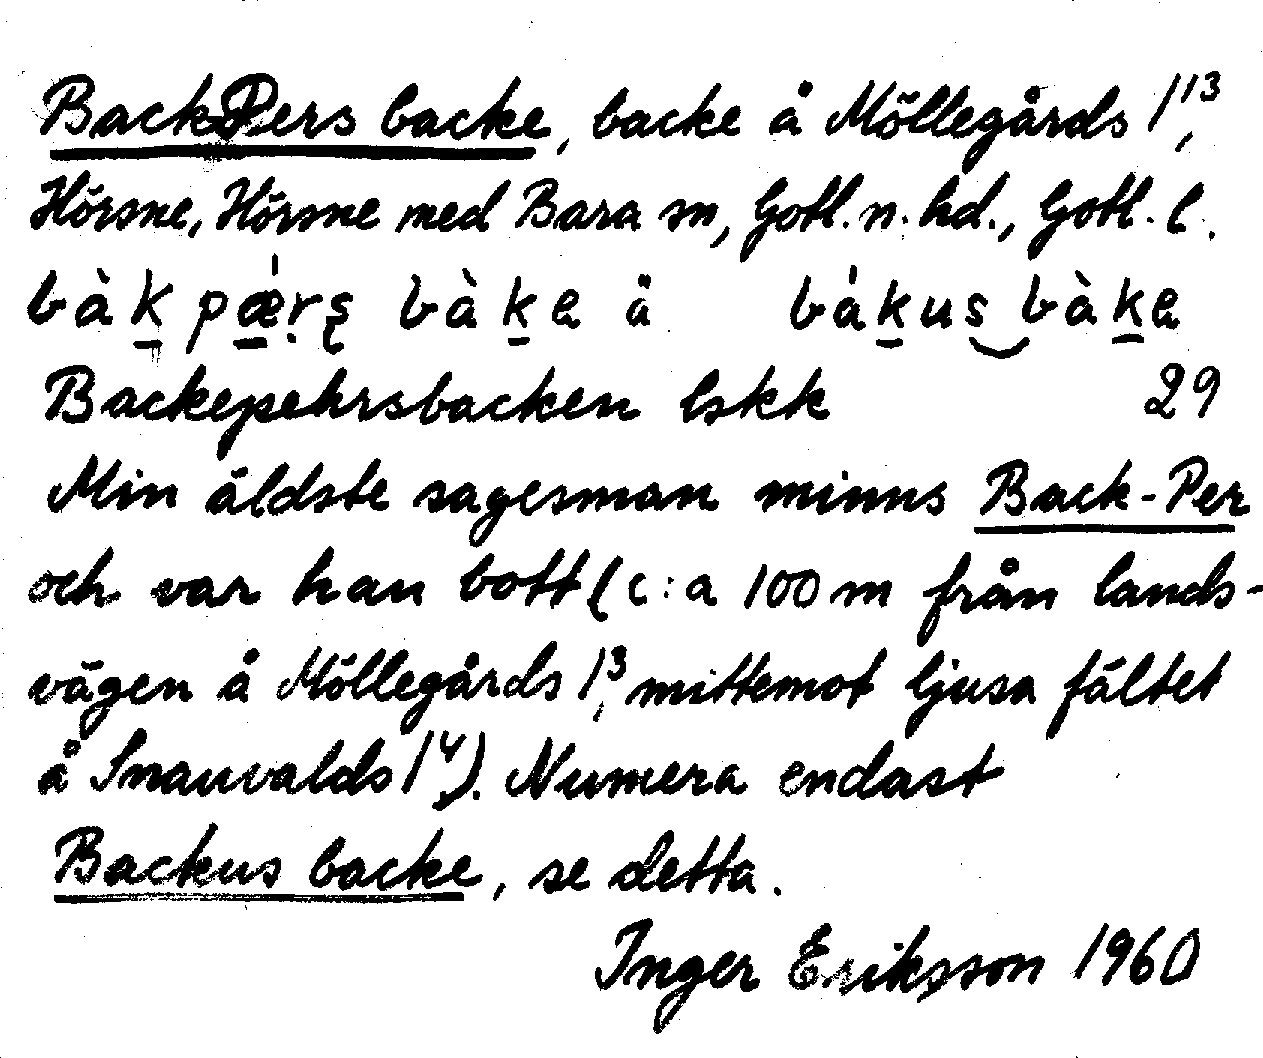 BackPers backe, backe å Möllegårds 1¹³,
Hörsne, Hörsne med Bara sn, Gotl. n. hd., Gotl. l.
bàk pǽrs bàke å bákus bàke
Backepehrsbacken lskk 29
Min äldste sagesman minns Back-Per
och var han bott (c:a 100 m från lands-
vägen å Möllegårds 1³, mittemot ljusa fältet
å Snauvalds 1⁴). Numera endast
Backus backe, se detta.
Inger Eriksson 1960